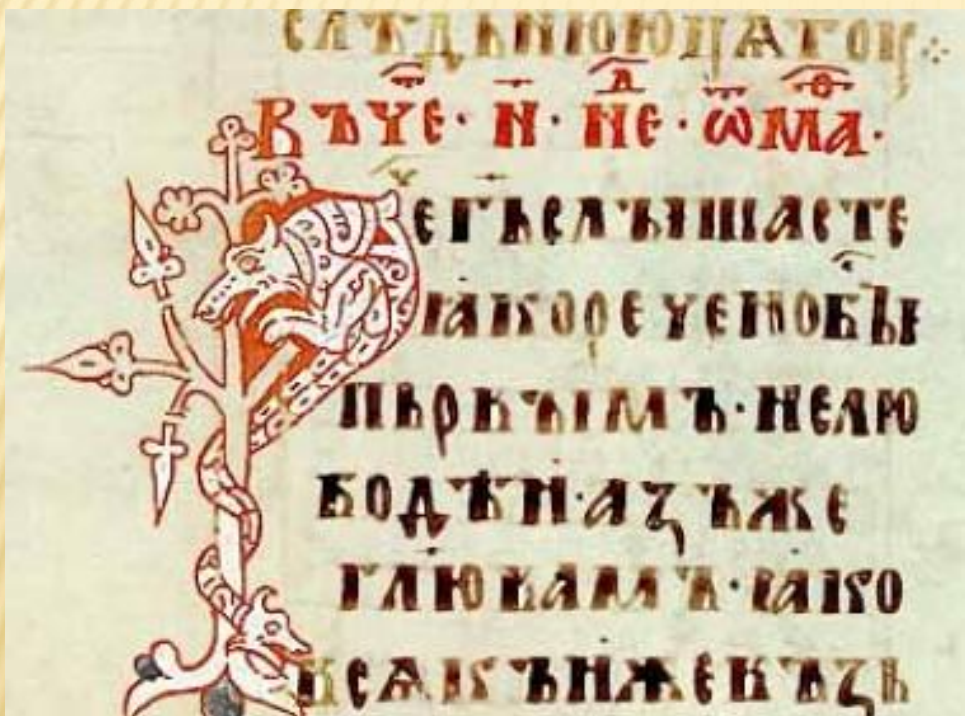 слѣдьнюю цѧтоу ⁘
Въ чеⷮ · н҃ · неⷣ · ѿ маⷴ ·
Реⷱ г҃ь слъıшасте
ꙗко речено бъıⷭ
пьрвъıмъ · не лю
бодѣи · азъ же
гл҃ю вамъ · ꙗко
всѧкъ иже възь